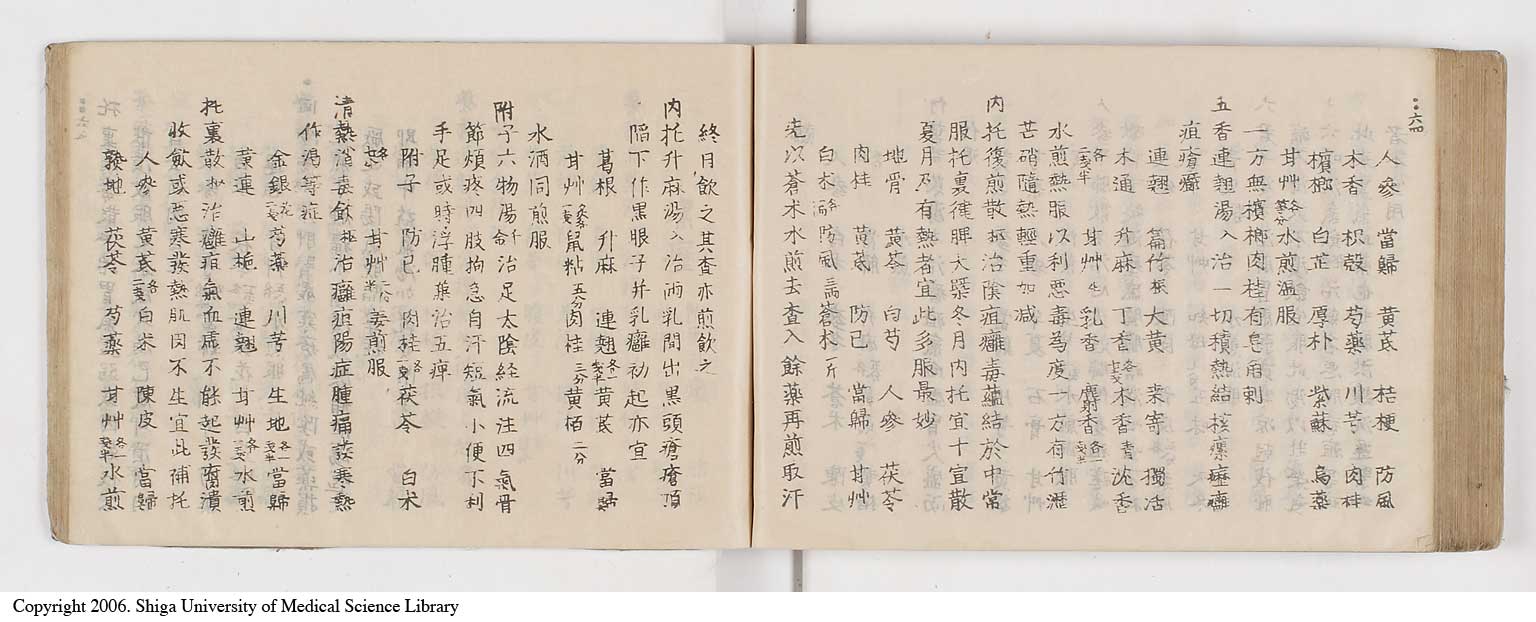 六四
人參 當歸 黄芪 桔梗 防風
木香 枳殻 芍藥 川芎 肉桂
檳榔 白芷 厚朴 紫蘇 烏藥
甘艸各等分水煎温服
一方無檳榔肉桂有皂角刺
五香連翹湯入 治一切積熱結核瘰癧癰
疽瘡癤
連翹 萹竹根 大黄 桒寄 獨活
木通 升麻 丁香各七分木香 沈香
各一戔半甘艸生 乳香 麝香各一戔半
水煎熱服以利悪毒為度一方有竹瀝
芒硝隨熱輕重加减
内托復煎散極治陰疽癰毒蘊結於中常
服托裏徤脾大槩冬月内托宜十宣散
夏月及有熱者宜此多服最妙
地骨 黄芩 白芍 人參 茯苓
肉桂 黄芪 防已 當歸 甘艸
白朮各一兩防風二兩蒼朮一斤
先以蒼术水煎去査入餘藥再煎取汗
終月飲之其査亦煎飲之
内托升麻湯入 治両乳間出黒頭瘡瘡頂
陥下作黒眼子并乳癰初起亦宜
葛根 升麻 連翹各一戔半黄芪 當歸
甘艸各一戔鼠粘五分肉桂三分黄栢二分
水酒同煎服
附子六物湯命 治足太陰経流注四氣骨
節煩疼四肢拘急自汗短氣小便不利
手足或時浮腫兼治五痺
附子 防已 肉桂各一戔茯苓 白术
各七分甘艸二分半姜煎服
清熱消毒飲極治癰疽陽症腫痛發寒熱
作渇等症
金銀花二戔芎藥 川芎 生地各一戔半當歸
黄連 山梔 連翹 甘艸各一戔水煎
托裏散 治癰疽氣血虚不能起發腐潰
收斂或悪寒發熱肌肉不生宜此補托
人參黄芪各二戔白朮 陳皮 當歸
熟地 茯苓 芍藥 甘艸各一戔半水煎
Copyright 2006. Shiga University of Medical Science Library